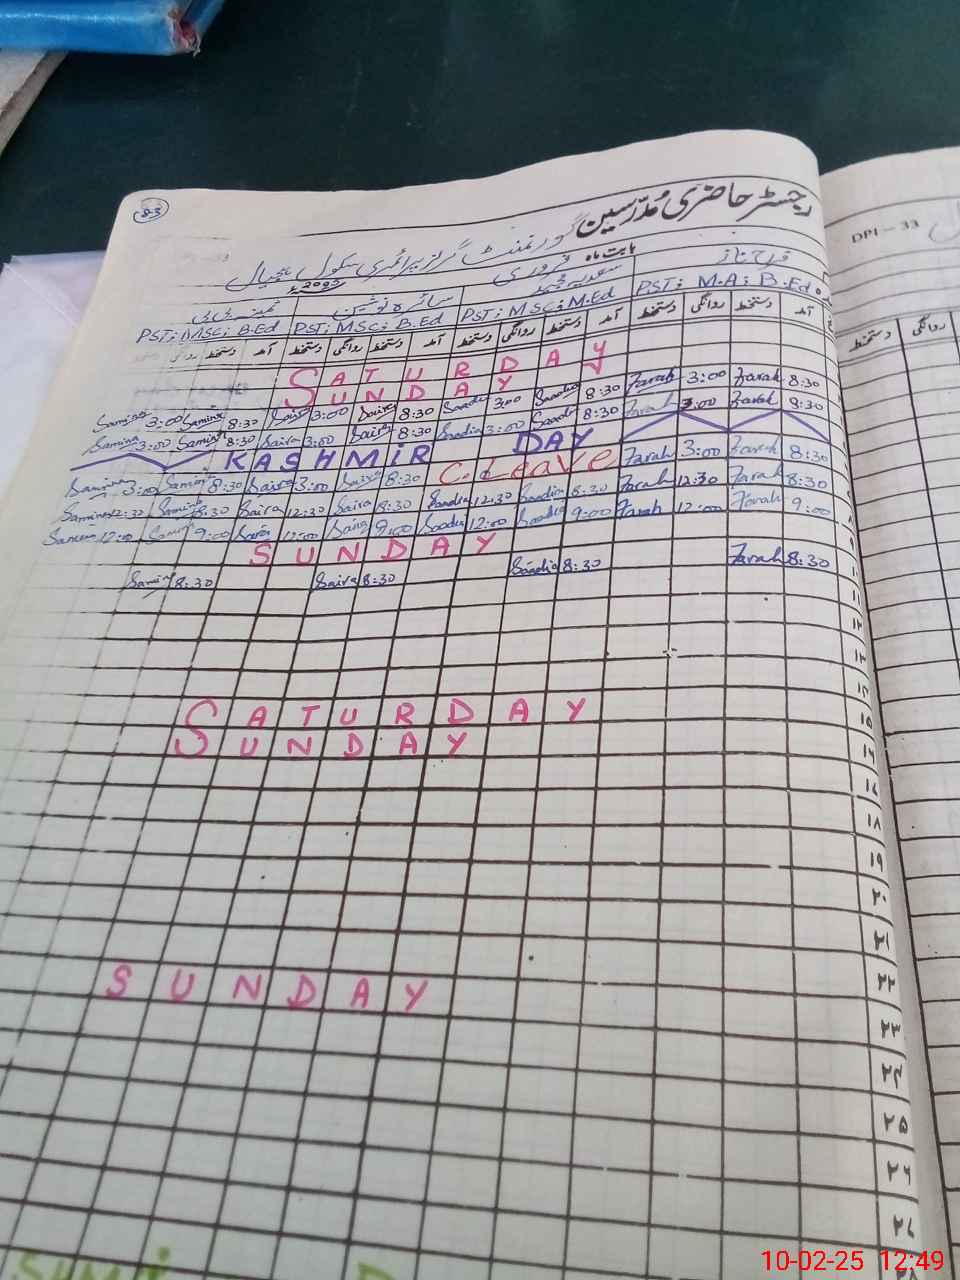 83
رجسٹر حاضری مُدرّسین
DPI - 33
گورنمنٹ گرلز پرائمری سکول
بابت ماہ فروری
فرح ناز سعدیہ محمد سائرہ نوشین ثمینہ بی بی
PST; M.A; B.Ed PST; MSc; M.Ed PST; MSc; B.Ed PST; MSc; B.Ed
آمد دستخط روانگی دستخط آمد دستخط روانگی دستخط آمد دستخط روانگی دستخط آمد دستخط روانگی
دستخط روانگی
SATURDAY
SUNDAY
Samina 3:00 Samina 8:30 Saira 3:00 Saira 8:30 Saadia 3:00 Saadia 8:30 Farah 3:00 Farah 8:30
Samina 3:00 Samina 8:30 Saira 3:00 Saira 8:30 Saadia 3:00 Saadia 8:30 Farah 3:00 Farah 8:30
KASHMIR DAY
Samina 3:00 Samina 8:30 Saira 3:00 Saira 8:30 C. Leave Farah 3:00 Farah 8:30
Samina 12:30 Samina 8:30 Saira 12:30 Saira 8:30 Saadia 12:30 Saadia 8:30 Farah 12:30 Farah 8:30
Samina 12:00 Samina 9:00 Saira 12:00 Saira 9:00 Saadia 12:00 Saadia 9:00 Farah 12:00 Farah 9:00
SUNDAY ۹
Samina 8:30 Saira 8:30 Saadia 8:30 Farah 8:30 ۱۰
۱۱
۱۲
۱۳
۱۴
SATURDAY ۱۵
SUNDAY ۱۶
۱۷
۱۸
۱۹
۲۰
۲۱
۲۲
SUNDAY ۲۳
۲۴
۲۵
۲۶
۲۷
10-02-25 12:49